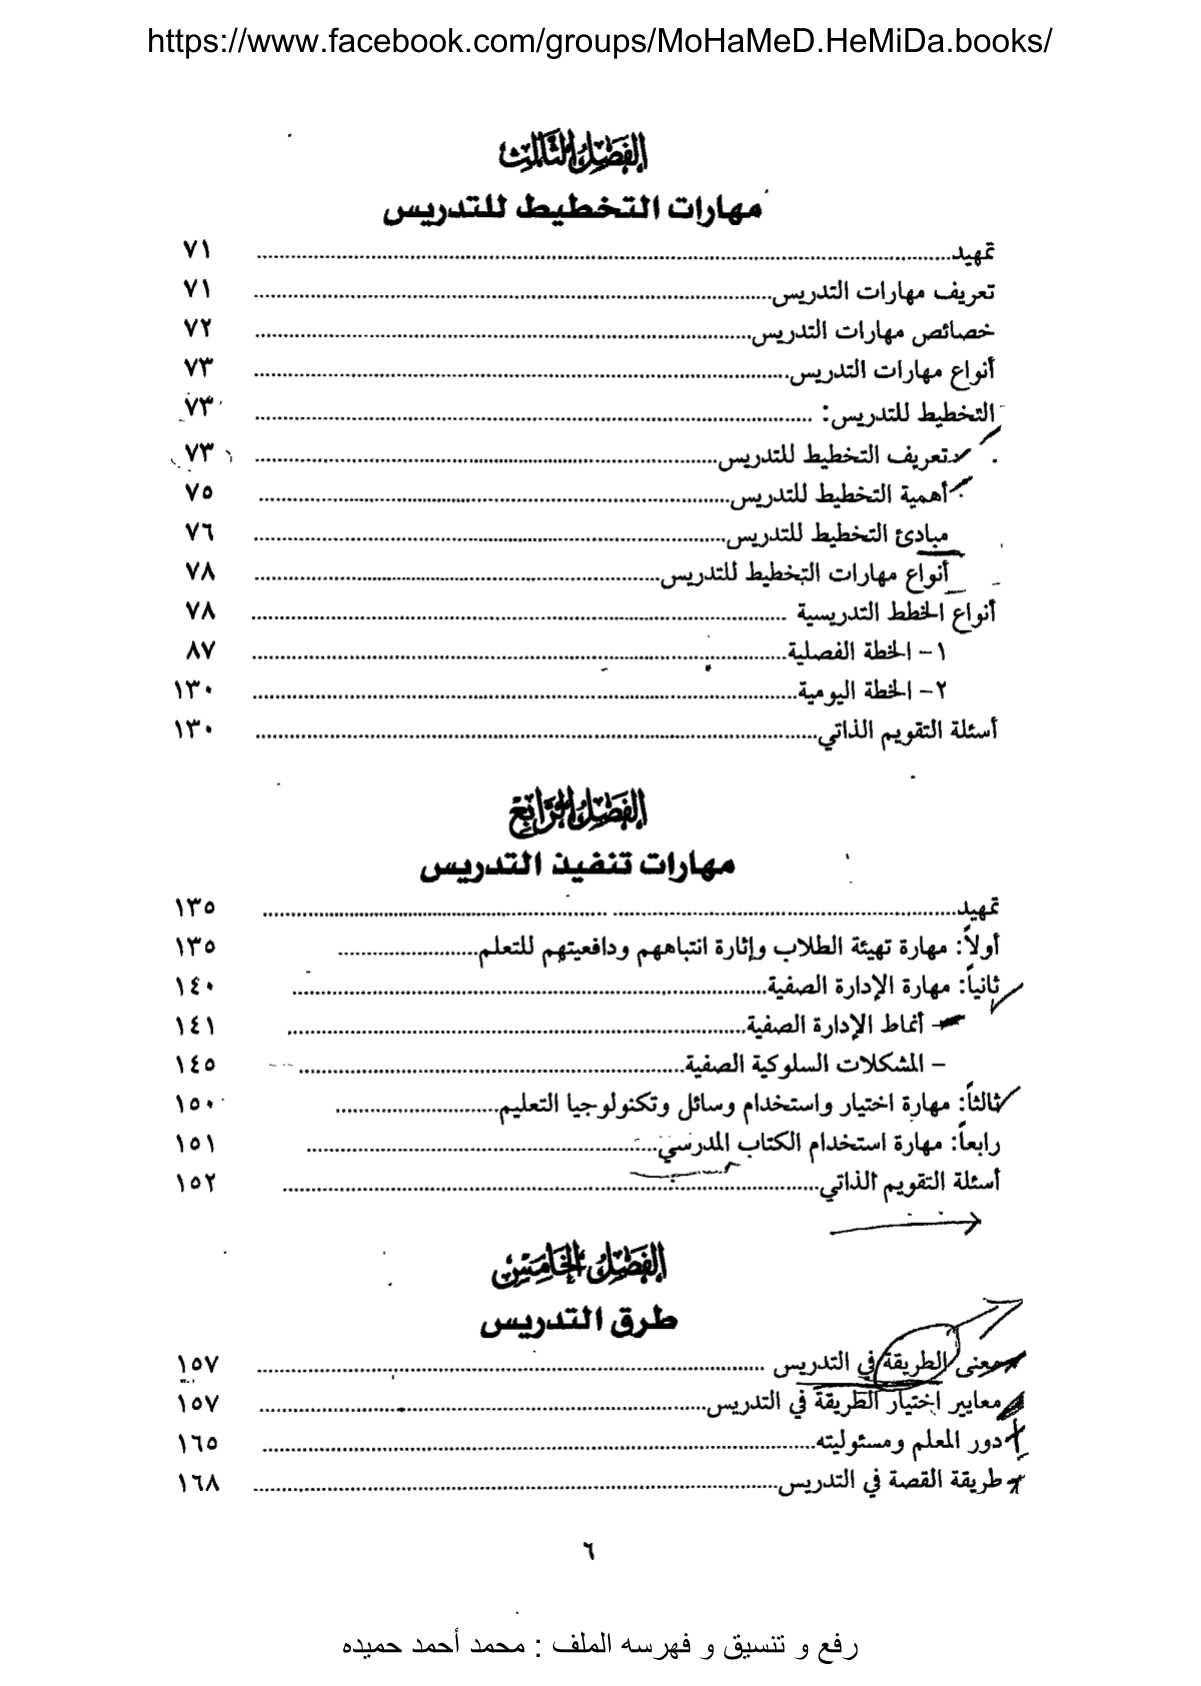 https://www.facebook.com/groups/MoHaMeD.HeMiDa.books/
الفصل الثالث
مهارات التخطيط للتدريس
تمهيد ٧١
تعريف مهارات التدريس ٧١
خصائص مهارات التدريس ٧٢
أنواع مهارات التدريس ٧٣
التخطيط للتدريس: ٧٣
تعريف التخطيط للتدريس ٧٣
أهمية التخطيط للتدريس ٧٥
مبادئ التخطيط للتدريس ٧٦
أنواع مهارات التخطيط للتدريس ٧٨
أنواع الخطط التدريسية ٧٨
١- الخطة الفصلية ٨٧
٢- الخطة اليومية ١٣٠
أسئلة التقويم الذاتي ١٣٠
الفصل الرابع
مهارات تنفيذ التدريس
تمهيد ١٣٥
أولاً: مهارة تهيئة الطلاب وإثارة انتباههم ودافعيتهم للتعلم ١٣٥
ثانياً: مهارة الإدارة الصفية ١٤٠
- أنماط الإدارة الصفية ١٤١
- المشكلات السلوكية الصفية ١٤٥
ثالثاً: مهارة اختيار واستخدام وسائل وتكنولوجيا التعليم ١٥٠
رابعاً: مهارة استخدام الكتاب المدرسي ١٥١
أسئلة التقويم الذاتي ١٥٢
الفصل الخامس
طرق التدريس
معنى الطريقة في التدريس ١٥٧
معايير اختيار الطريقة في التدريس ١٥٧
دور المعلم ومسئوليته ١٦٥
طريقة القصة في التدريس ١٦٨
٦
رفع و تنسيق و فهرسه الملف : محمد أحمد حميده